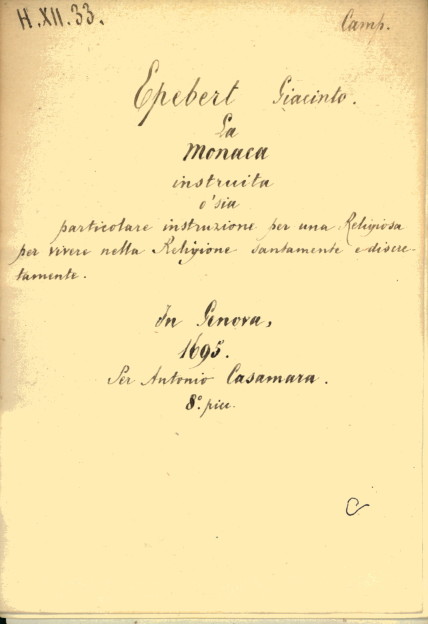 H.XII.33.
Camp.
Epebert Giacinto.
La
Monaca
instruita
o'sia
particolare instruzione per una Religiosa
per vivere nella Religione santamente e discre-
tamente.
In Genova,
1695.
Per Antonio Casamara.
8.° picc.
C